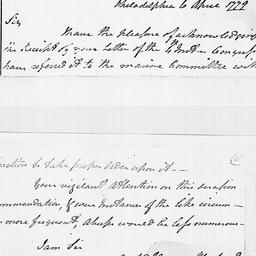 Philadelphia 6 April 1779
Sir,
I have the pleasure of acknowledging
the receipt of your Letter of the Inst. Congress
have referred it to the marine Committee with
direction to take proper order upon it —
Your vigilant attention on this occasion
commendation, if were Instances of the like circum-
more frequent, abuses would be less numerous—
I am Sir